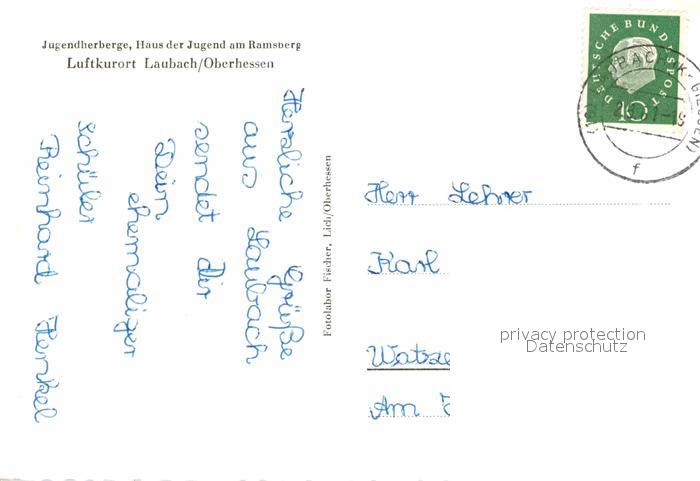 Jugendherberge, Haus der Jugend am Ramsberg
Luftkurort Laubach/Oberhessen
Herzliche Grüße
aus Laubach
sendet dir
Dein
ehemaliger
Schüler
Reinhard Henkel
Fotolabor Fischer, Lich/Oberhessen
DEUTSCHE BUNDESPOST
10
f
Herr Lehrer
Karl
Watze
Am
privacy protection
Datenschutz